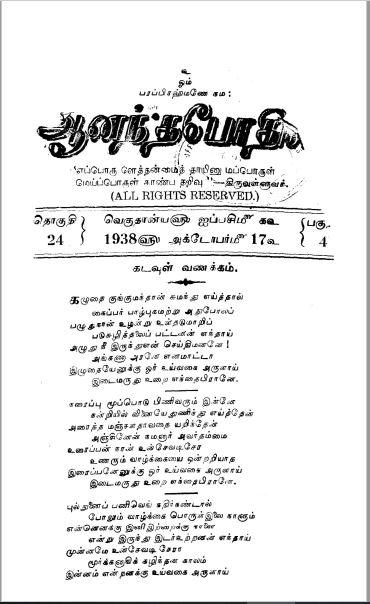 உ
ஓம்
பரப்பிரஹ்மணே நம:
ஆனந்தபோதினி
"எப்பொரு ளெத்தன்மைத் தாயினு மப்பொருள்
மெய்ப்பொருள் காண்ப தறிவு"—திருவள்ளுவர்.
(ALL RIGHTS RESERVED.)
தொகுதி
24
வெகுதான்ய௵ ஐப்பசி௴ ௧௳
1938௵ அக்டோபர்௴ 17௳
பகுதி
4
கடவுள் வணக்கம்.
கழுதை குங்குமந்தான் சுமந்து எய்த்தால்
கைப்பர் பாழ்புகமற்று அதுபோலப்
பழுது நான் உழன்று உள்தடுமாறிப்
படுசுழித்தலைப் பட்டனன் எந்தாய்
அழுது நீ இருந்துஎன் செய்திமனனே!
அங்கணா அரனே எனமாட்டா
இழுதையேனுக்கு ஓர் உய்வகை அருளாய்
இடைமருது உறை எந்தைபிரானே.
நரைப்பு மூப்பொடு பிணிவரும் இன்னே
நன்றியில் வினையேதுணிந்து எய்த்தேன்
அரைத்த மஞ்சளதாவதை யறிந்தேன்
அஞ்சினேன் நமனார் அவர்தம்மை
உரைப்பன் நான் உன்சேவடிசேர
உணரும் வாழ்க்கையை ஒன்றறியாத
இரைப்பனேனுக்கு ஓர் உய்வகை அருளாய்
இடைமருது உறை எந்தைபிரானே.
புல்நுனைப் பனிவெங் கதிர்கண்டால்
போலும் வாழ்க்கை பொருள்இலை நாளும்
என்எனக்கு இனிஇற்றைக்கு நாளை
என்று இருந்து இடர்உற்றனன் எந்தாய்
முன்னமே உன்சேவடி சேரா
மூர்க்கனாகிக் கழிந்தன காலம்
இன்னம் என்றனக்கு உய்வகை அருளாய்